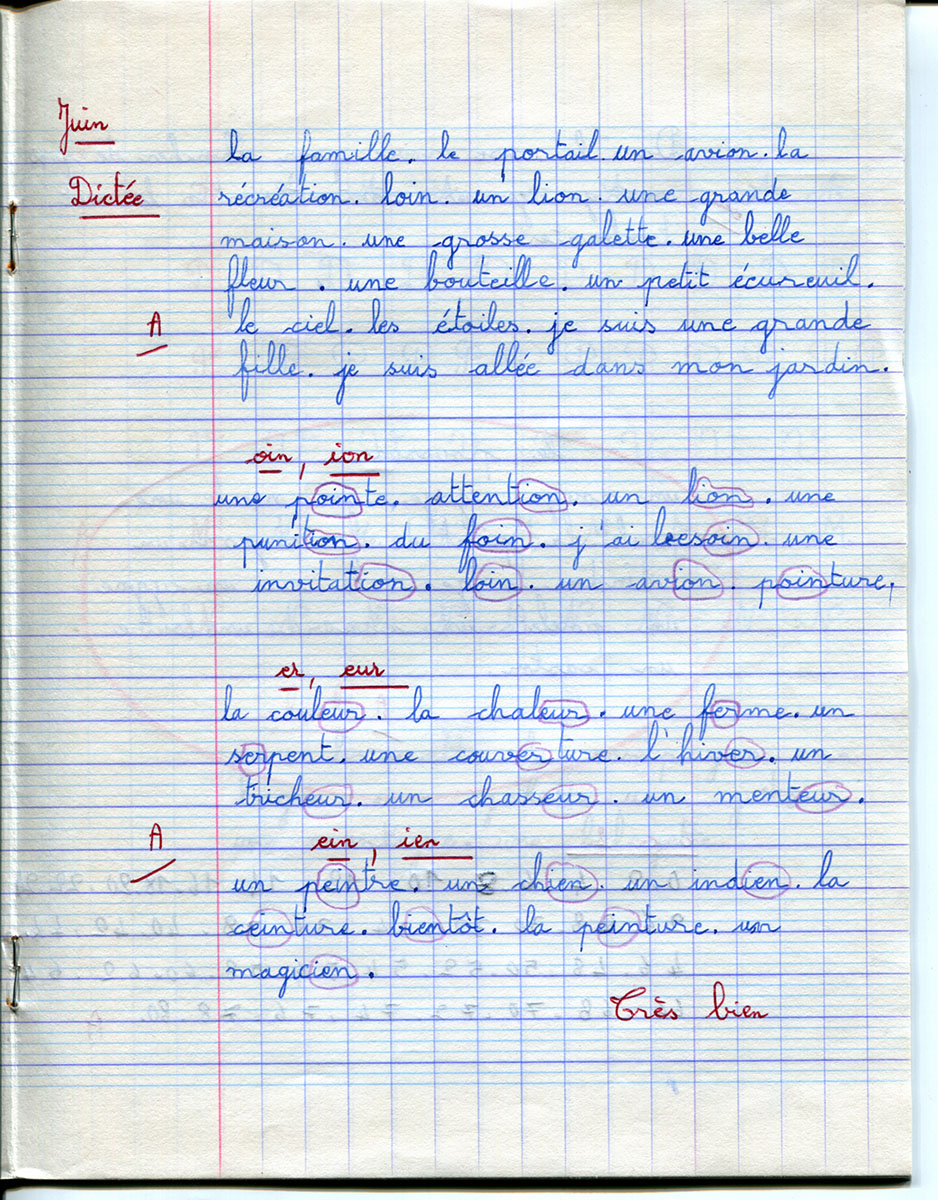 Juin
Dictée
la famille. le portail. un avion. la
récréation. loin. un lion. une grande
maison. une grosse galette. une belle
fleur. une bouteille. un petit écureuil.
A
le ciel. les étoiles. je suis une grande
fille. je suis allée dans mon jardin.
oin, ion
une pointe. attention. un lion. une
punition. du foin. j'ai besoin. une
invitation. loin. un avion. pointure.
er, eur
la couleur. la chaleur. une ferme. un
serpent. une couverture. l'hiver. un
tricheur. un chasseur. un menteur.
A
ein, ien
un peintre. un chien. un indien. la
ceinture. bientôt. la peinture. un
magicien.
Très bien